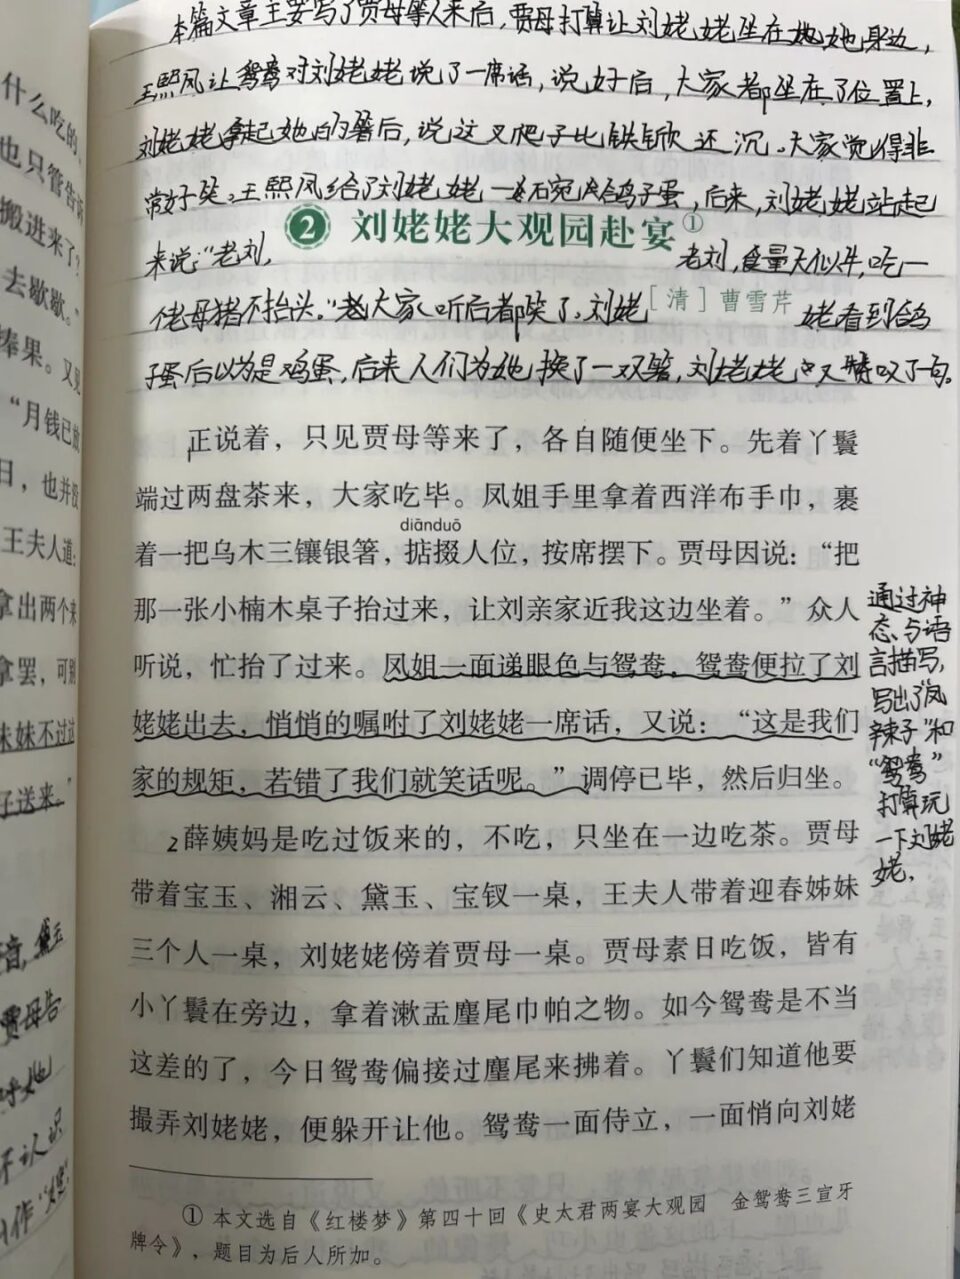 本篇文章主要写了贾母等人来后，贾母打算让刘姥姥坐在她身边，
王熙凤让鸳鸯对刘姥姥说了一席话，说好后，大家都坐在了位置上，
刘姥姥拿起她的箸后，说这叉爬子比铁锨还沉。大家觉得非
常好笑。王熙凤给了刘姥姥一碗鸽子蛋，后来，刘姥姥站起
来说：“老刘，老刘，食量大似牛，吃一
佬母猪不抬头。”大家听后都笑了。刘姥姥看到鸽
子蛋后以为是鸡蛋，后来人们为她换了一双箸，刘姥姥又叹了一句。
2 刘姥姥大观园赴宴①
［清］曹雪芹
正说着，只见贾母等来了，各自随便坐下。先着丫鬟
端过两盘茶来，大家吃毕。凤姐手里拿着西洋布手巾，裹
diānduō
着一把乌木三镶银箸，掂掇人位，按席摆下。贾母因说：“把
那一张小楠木桌子抬过来，让刘亲家近我这边坐着。”众人
听说，忙抬了过来。凤姐一面递眼色与鸳鸯，鸳鸯便拉了刘
姥姥出去，悄悄的嘱咐了刘姥姥一席话，又说：“这是我们
家的规矩，若错了我们就笑话呢。”调停已毕，然后归坐。
2薛姨妈是吃过饭来的，不吃，只坐在一边吃茶。贾母
带着宝玉、湘云、黛玉、宝钗一桌，王夫人带着迎春姊妹
三个人一桌，刘姥姥傍着贾母一桌。贾母素日吃饭，皆有
小丫鬟在旁边，拿着漱盂麈尾巾帕之物。如今鸳鸯是不当
这差的了，今日鸳鸯偏接过麈尾来拂着。丫鬟们知道他要
撮弄刘姥姥，便躲开让他。鸳鸯一面侍立，一面悄向刘姥
①本文选自《红楼梦》第四十回《史太君两宴大观园　金鸳鸯三宣牙
牌令》，题目为后人所加。
通过神
态、与语
言描写，
写出了“凤
辣子”和
“鸳鸯”
打算玩
一下刘姥
姥，
什么吃的、
也只管告诉
搬进来了？
去歇歇。”
捧果。又见
“月钱已放
日，也并没
王夫人道：
拿出两个来
拿罢，可别
妹妹不过这
子送来。”
贾母告
不认识